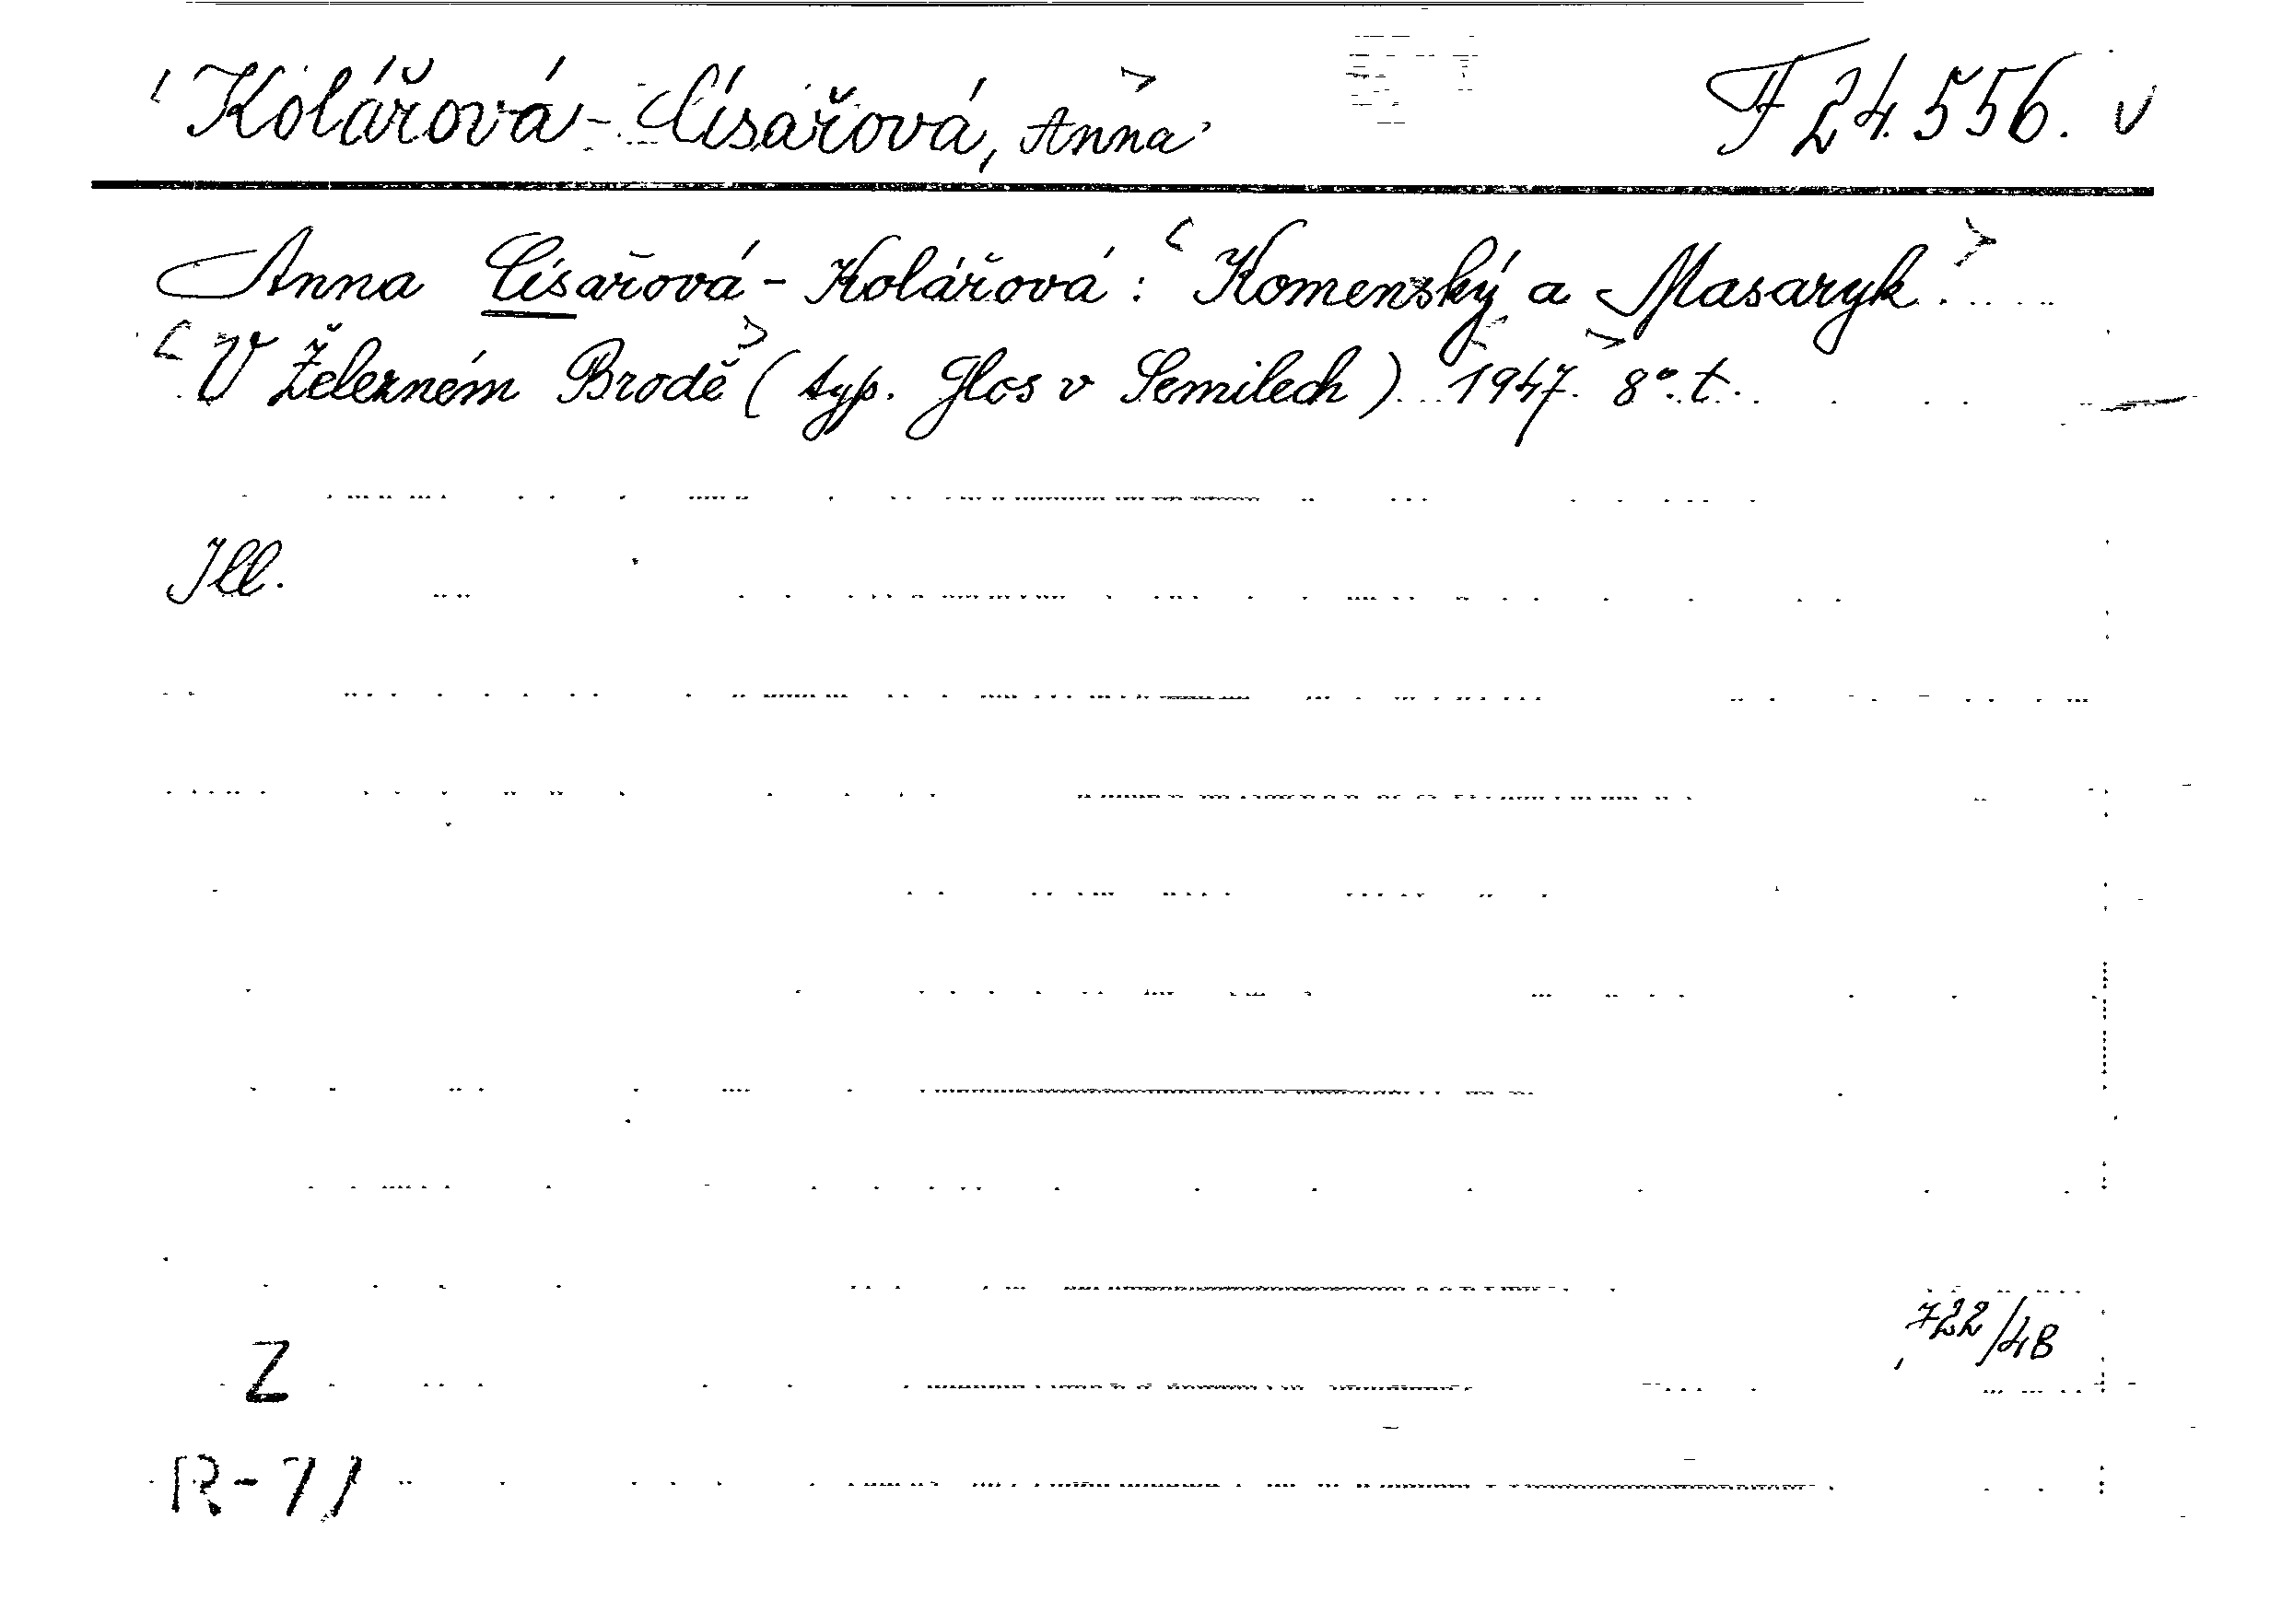 <Kolářová-Císařová, Anna> F 24.556. v
Anna Císařová-Kolářová: <Komenský a Masaryk.>
<V Železném Brodě> (typ. Glos v Semilech) 1947.> 8°. t.
Ill.
722/48
Z
R-71